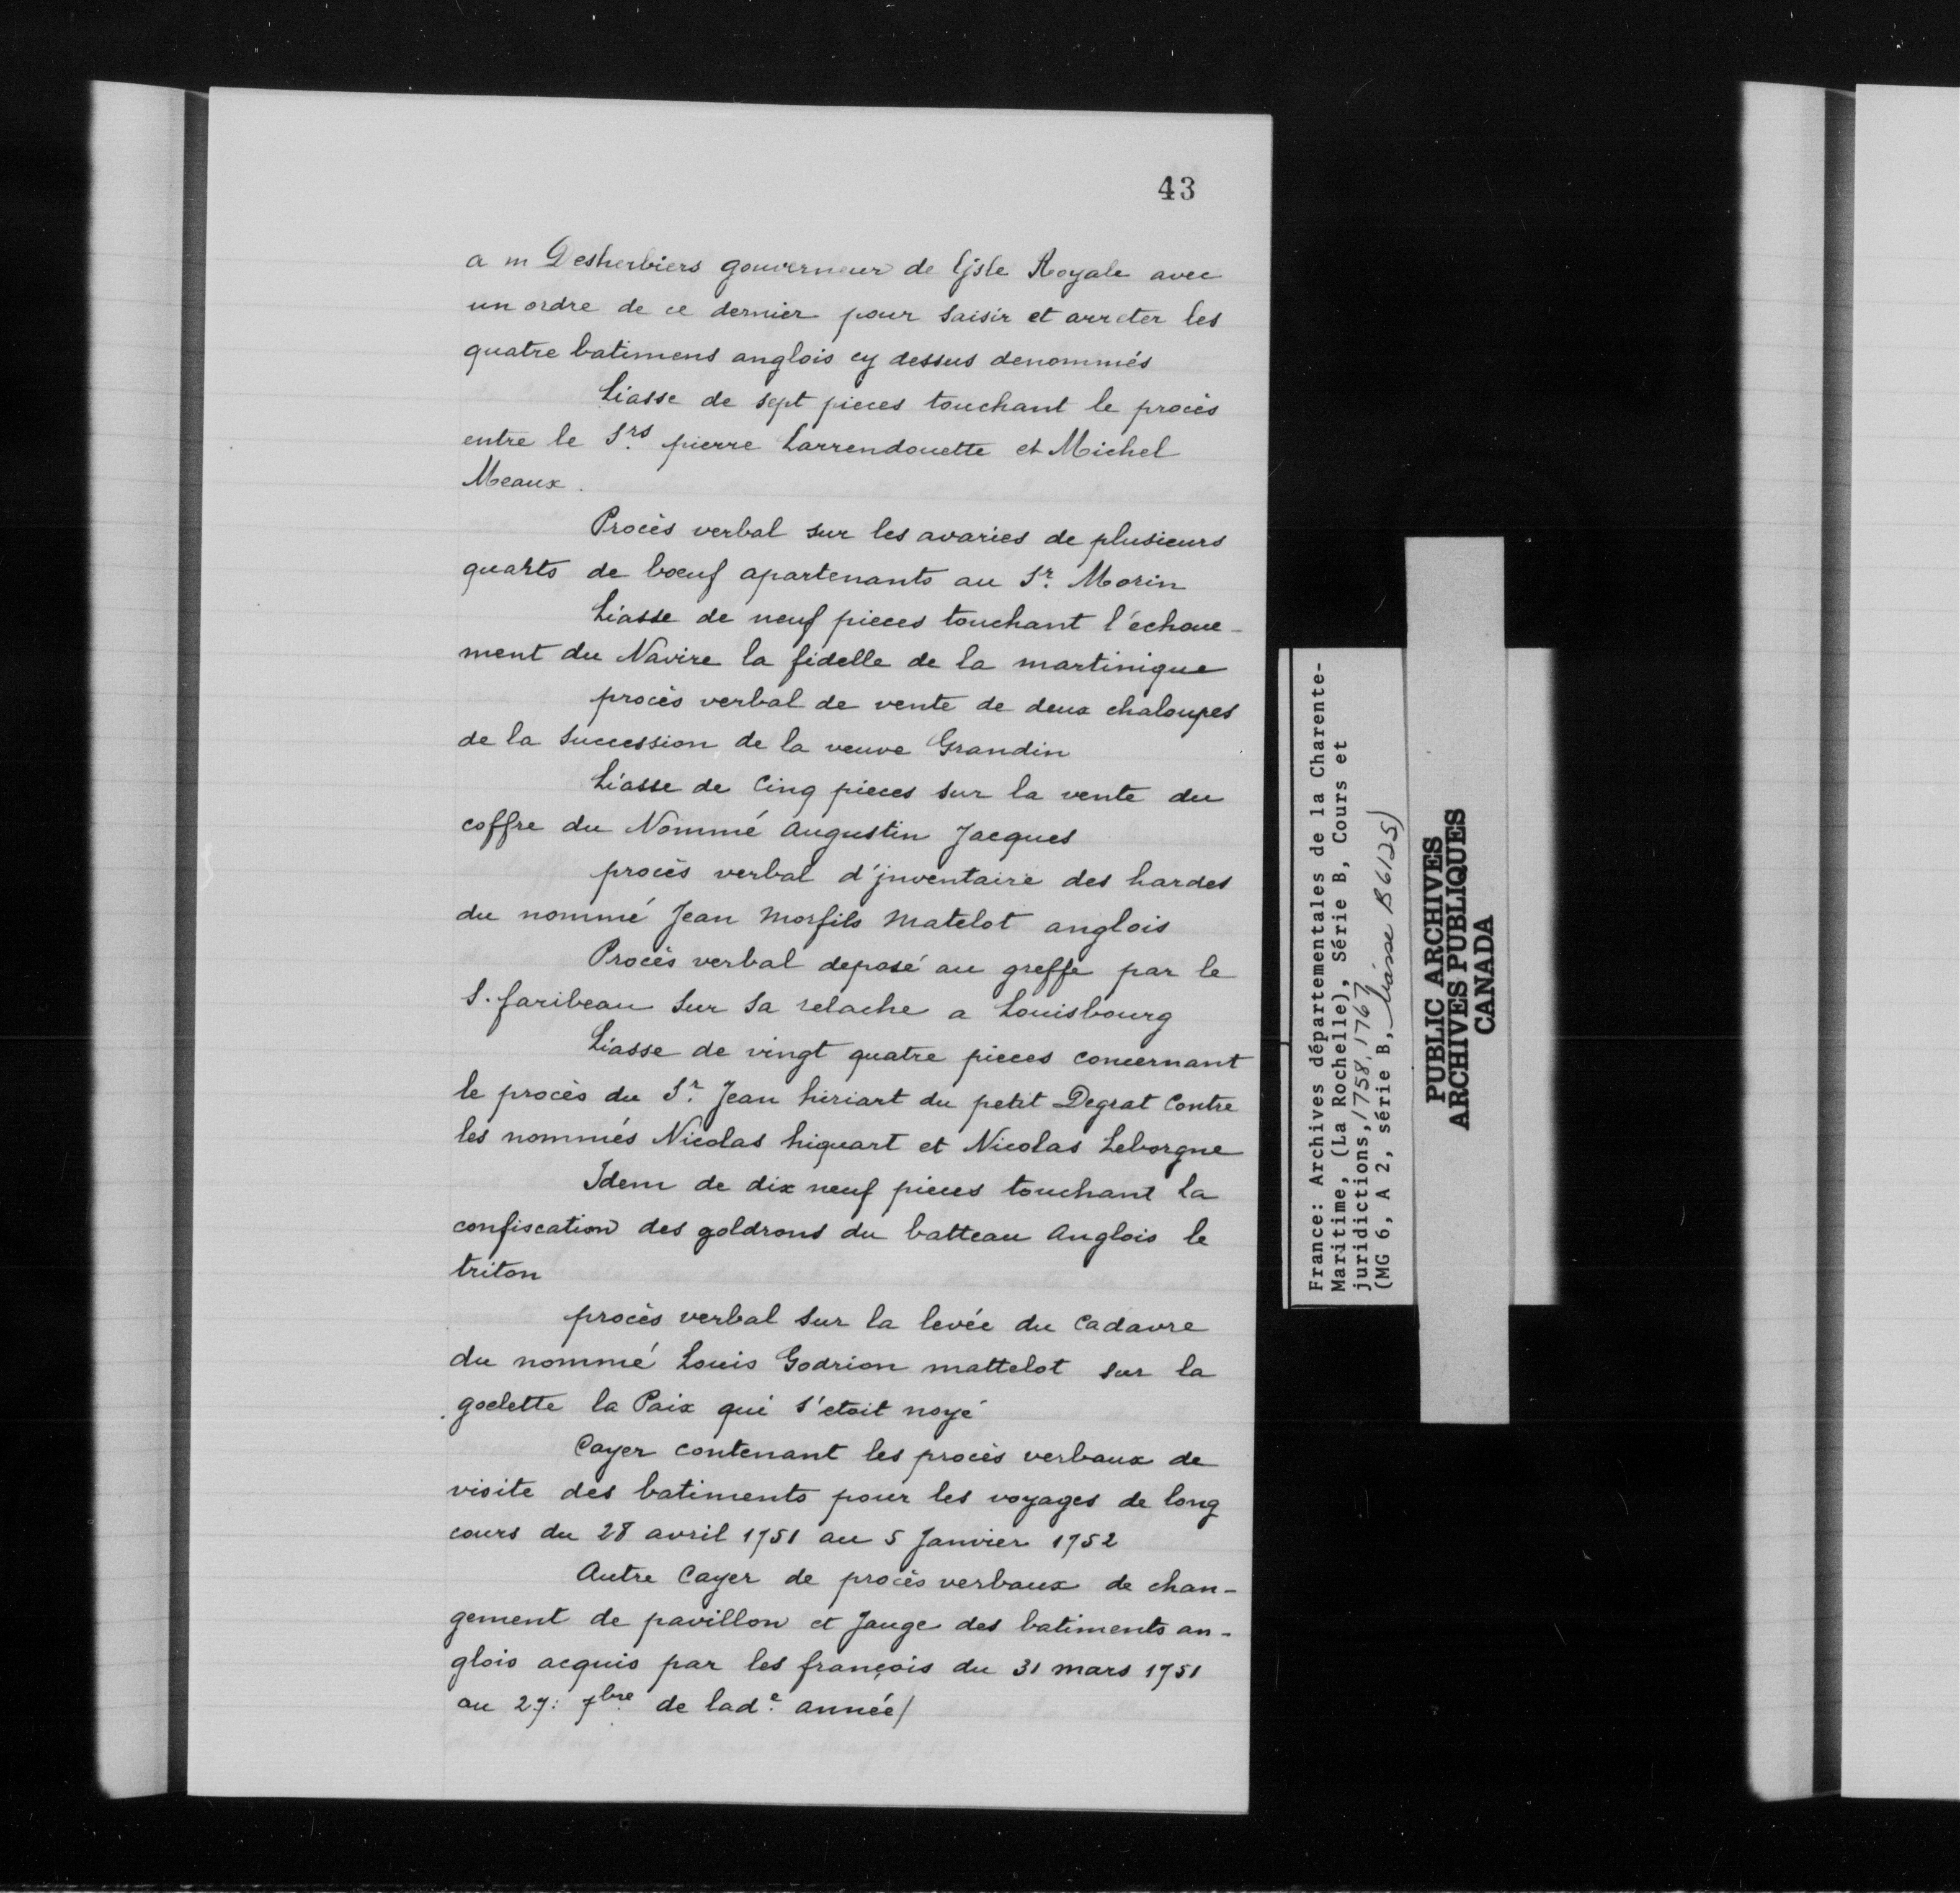 43
a m Desherbiers gouverneur de l'jsle Royale avec
un ordre de ce dernier pour saisir et arreter les
quatre batimens anglois cy dessus denommés
Liasse de sept pieces touchant le procès
entre le Srs pierre Larrendouette et Michel
Meaux.
Procès verbal sur les avaries de plusieurs
quarts de boeuf apartenants au Sr. Morin
Liasse de neuf pieces touchant l'échoue-
ment du Navire la fidelle de la martinique
procès verbal de vente de deux chaloupes
de la succession de la veuve Grandin
Liasse de Cinq pièces sur la vente du
coffre du Nommé Augustin Jacques
procès verbal d'jnventaire des hardes
du nommé Jean Morfils Matelot anglois
Procès verbal deposé au greffe par le
S. faribeau sur sa relache a Louisbourg
Liasse de vingt quatre pieces concernant
le procès du Sr. Jean hiriart du petit Degrat Contre
les nommés Nicolas hiquart et Nicolas Leborgne
Idem de dix neuf pieces touchant la
confiscation des goldrons du batteau Anglois le
triton
procès verbal sur la levée du Cadavre
du nommé Louis Godrion mattelot sur la
goelette la Paix qui s'etoit noyé
Cayer contenant les procès verbaux de
visite des batiments pour les voyages de long
cours du 28 avril 1751 au 5 Janvier 1752
Autre Cayer de procès verbaux de chan-
gement de pavillon et Jauge des batiments an-
glois acquis par les françois du 31 mars 1751
au 27: 7bre de lade. année/
France: Archives départementales de la Charente-
Maritime, (La Rochelle), Série B, Cours et
juridictions, 1758, 1767
(MG 6, A 2, série B, liasse B6125)
PUBLIC ARCHIVES
ARCHIVES PUBLIQUES
CANADA